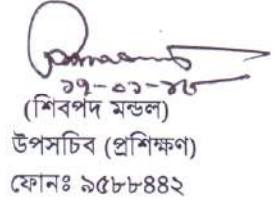 ১৭-০১-১৮
(শিবপদ মন্ডল)
উপসচিব (প্রশিক্ষণ)
ফোনঃ ৯৫৮৮৪৪২